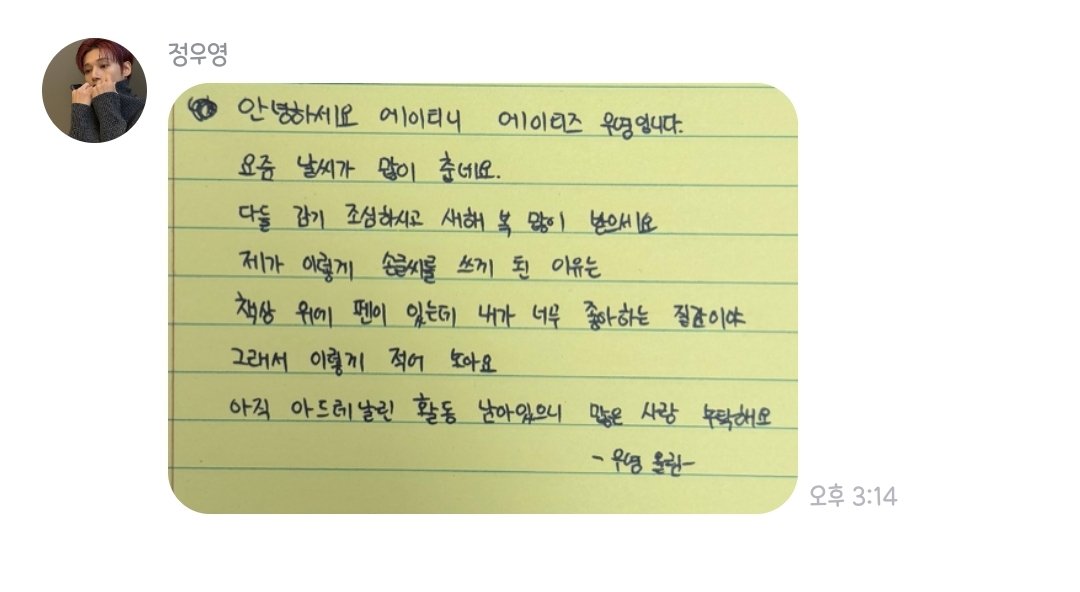 정우영
안녕하세요 에이티니 에이티즈 우영입니다.
요즘 날씨가 많이 춥네요.
다들 감기 조심하시고 새해 복 많이 받으세요
제가 이렇게 손글씨를 쓰게 된 이유는
책상 위에 펜이 있는데 내가 너무 좋아하는 질감이야
그래서 이렇게 적어 보아요
아직 아드레날린 활동 남아있으니 많은 사랑 부탁해요
-우영 올림-
오후 3:14